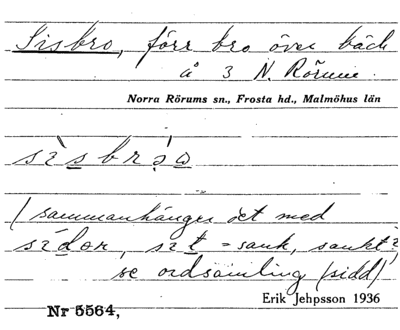 Sisbro, förr bro över bäck
å 3 N. Rörum.
Norra Rörums sn., Frosta hd., Malmöhus län
sìsbrɔ́ω
(sammanhänges det med
sídor, sit = sank, sankt?
se ordsamling (sidd)
Erik Jehpsson 1936
Nr 5564,